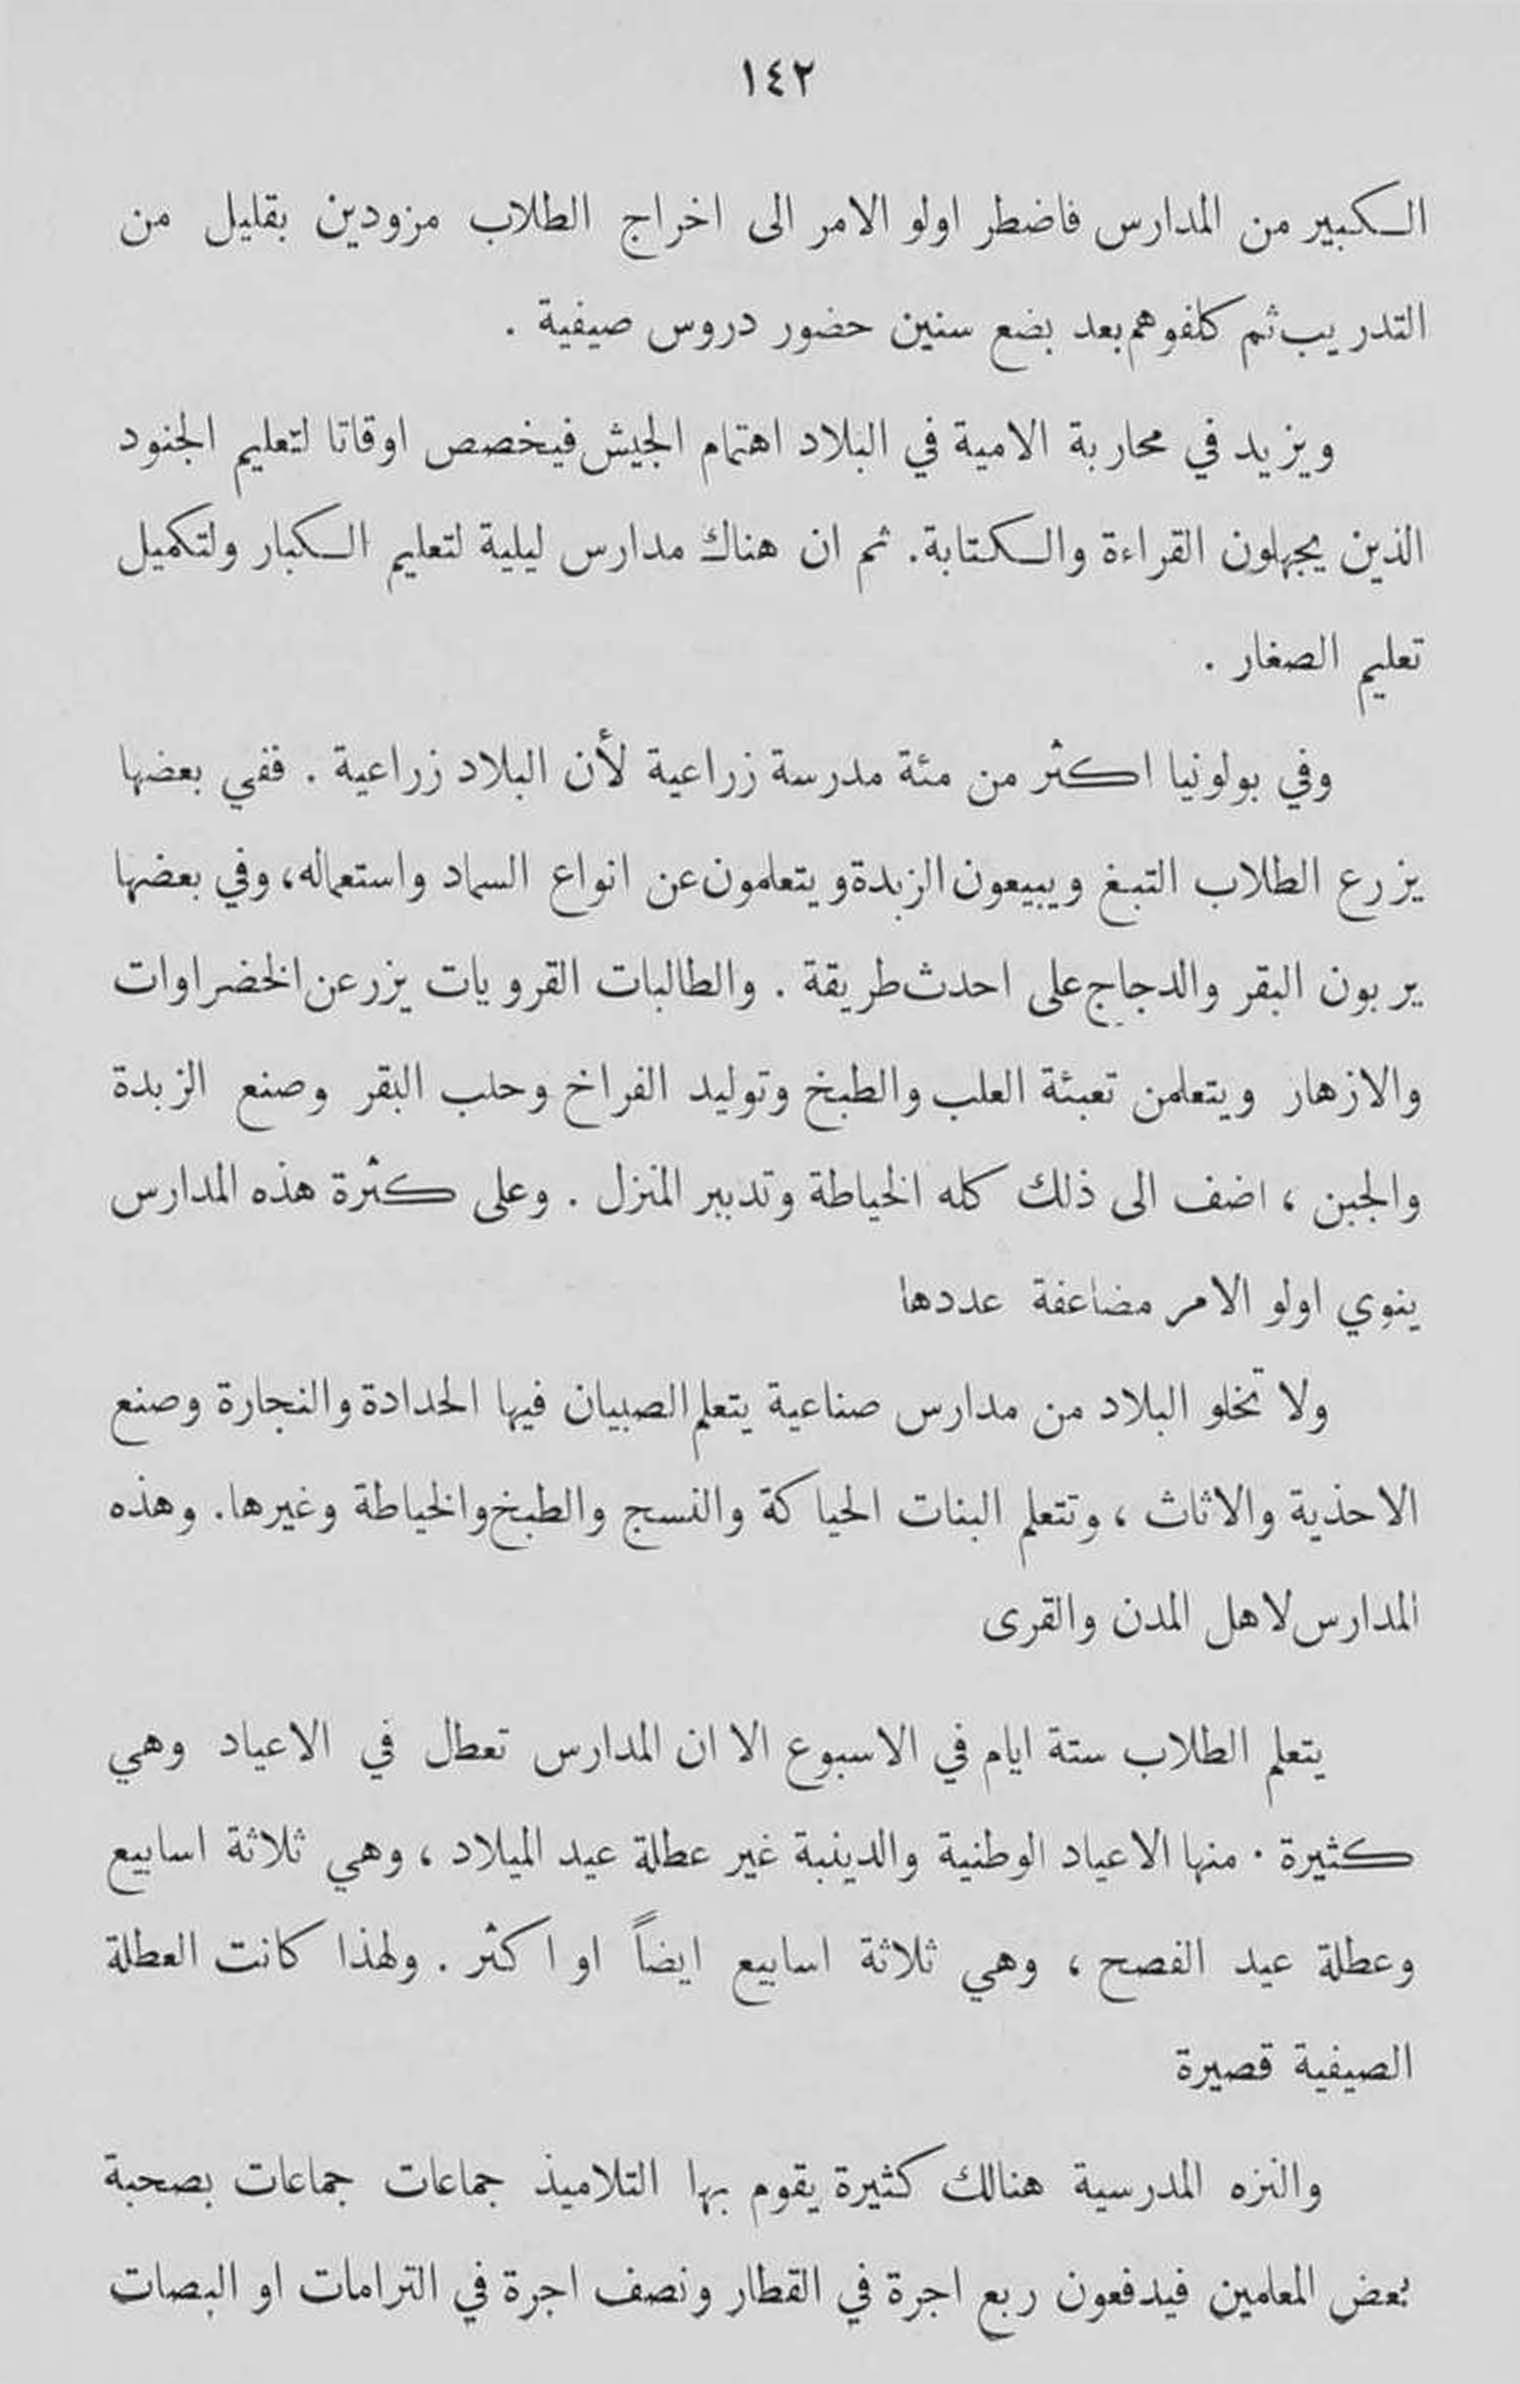 ١٤٢
الكبير من المدارس فاضطر اولو الامر الى اخراج الطلاب مزودين بقليل من
التدريب ثم كلفوهم بعد بضع سنين حضور دروس صيفية .
ويزيد في محاربة الامية في البلاد اهتمام الجيش فيخصص اوقاتا لتعليم الجنود
الذين يجهلون القراءة والكتابة. ثم ان هناك مدارس ليلية لتعليم الكبار ولتكميل
تعليم الصغار .
وفي بولونيا اكثر من مئة مدرسة زراعية لأن البلاد زراعية . ففي بعضها
يزرع الطلاب التبغ ويبيعون الزبدة ويتعلمون عن انواع السماد واستعماله، وفي بعضها
يربون البقر والدجاج على احدث طريقة . والطالبات القرويات يزرعن الخضراوات
والازهار ويتعلمن تعبئة العلب والطبخ وتوليد الفراخ وحلب البقر وصنع الزبدة
والجبن ، اضف الى ذلك كله الخياطة وتدبير المنزل . وعلى كثرة هذه المدارس
ينوي اولو الامر مضاعفة عددها
ولا تخلو البلاد من مدارس صناعية يتعلم الصبيان فيها الحدادة والنجارة وصنع
الاحذية والاثاث ، وتتعلم البنات الحياكة والنسج والطبخ والخياطة وغيرها. وهذه
المدارس لاهل المدن والقرى
يتعلم الطلاب ستة ايام في الاسبوع الا ان المدارس تعطل في الاعياد وهي
كثيرة . منها الاعياد الوطنية والدينية غير عطلة عيد الميلاد ، وهي ثلاثة اسابيع
وعطلة عيد الفصح ، وهي ثلاثة اسابيع ايضاً او اكثر . ولهذا كانت العطلة
الصيفية قصيرة
والنزه المدرسية هنالك كثيرة يقوم بها التلاميذ جماعات جماعات بصحبة
بعض المعلمين فيدفعون ربع اجرة في القطار ونصف اجرة في الترامات او البصات